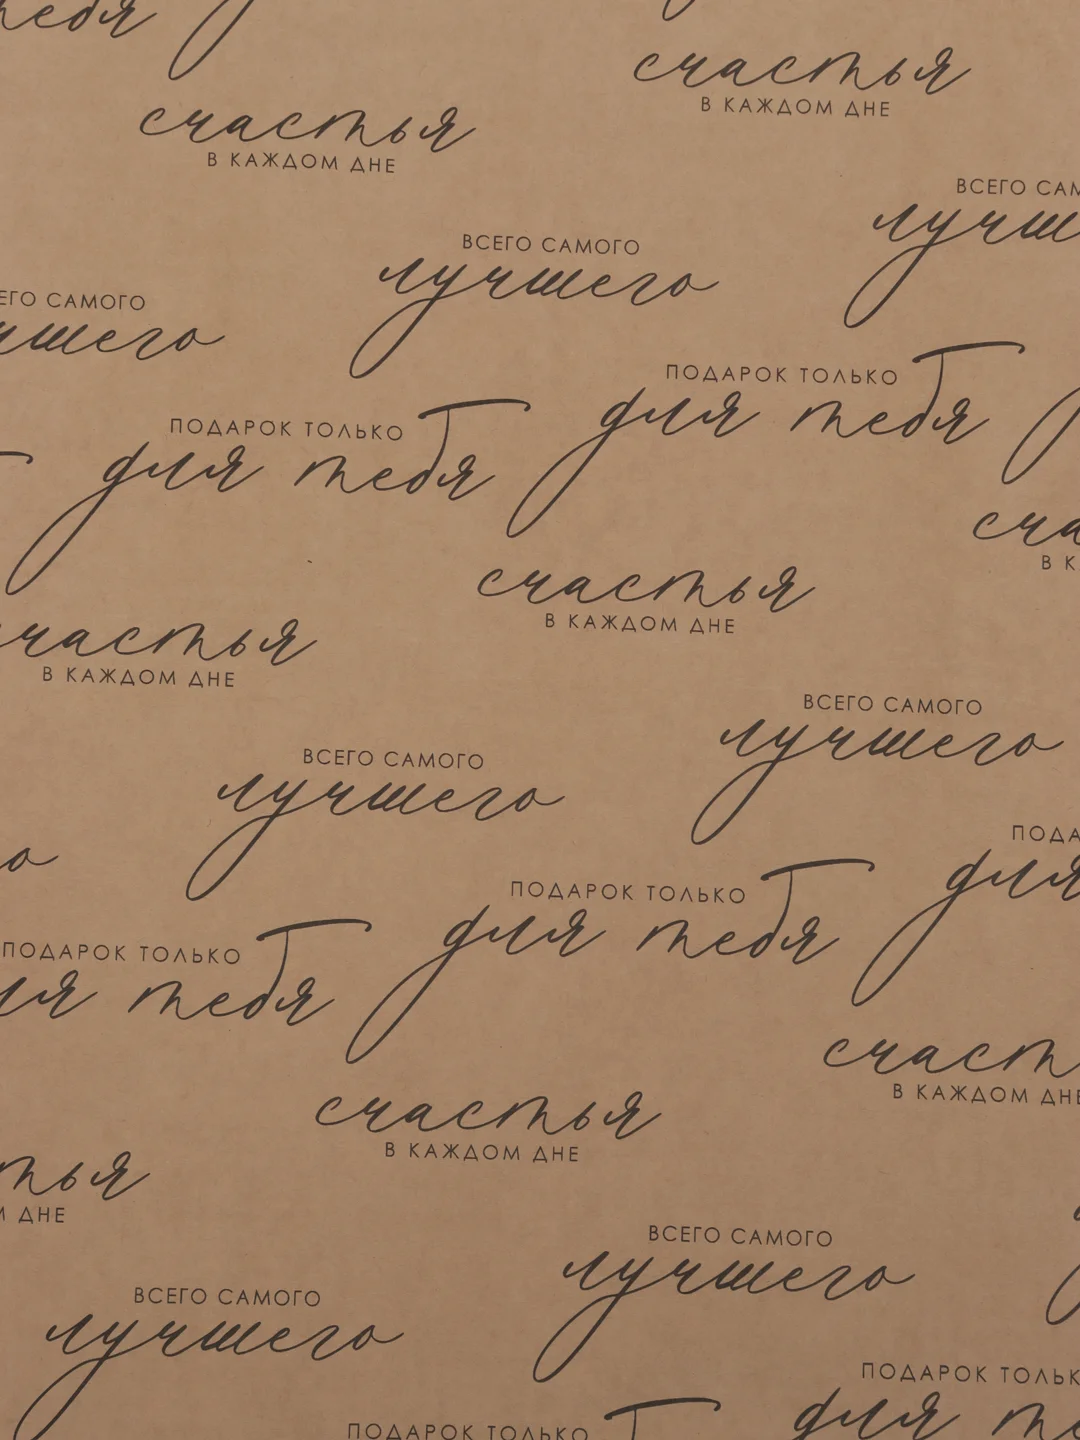 тебя
счастья
В КАЖДОМ ДНЕ
счастья
В КАЖДОМ ДНЕ
ВСЕГО САМ
лучш
ВСЕГО САМОГО
лучшего
ЕГО САМОГО
чшего
ПОДАРОК ТОЛЬКО
для тебя
ПОДАРОК ТОЛЬКО
для тебя
сча
В К
счастья
В КАЖДОМ ДНЕ
частья
В КАЖДОМ ДНЕ
ВСЕГО САМОГО
лучшего
ВСЕГО САМОГО
лучшего
ПОДА
для
о
ПОДАРОК ТОЛЬКО
для тебя
ПОДАРОК ТОЛЬКО
ля тебя
счаст
В КАЖДОМ ДНЕ
счастья
В КАЖДОМ ДНЕ
тья
М ДНЕ
ВСЕГО САМОГО
лучшего
ВСЕГО САМОГО
лучшего
ПОДАРОК ТОЛЬК
для те
ПОДАРОК ТОЛЬКО